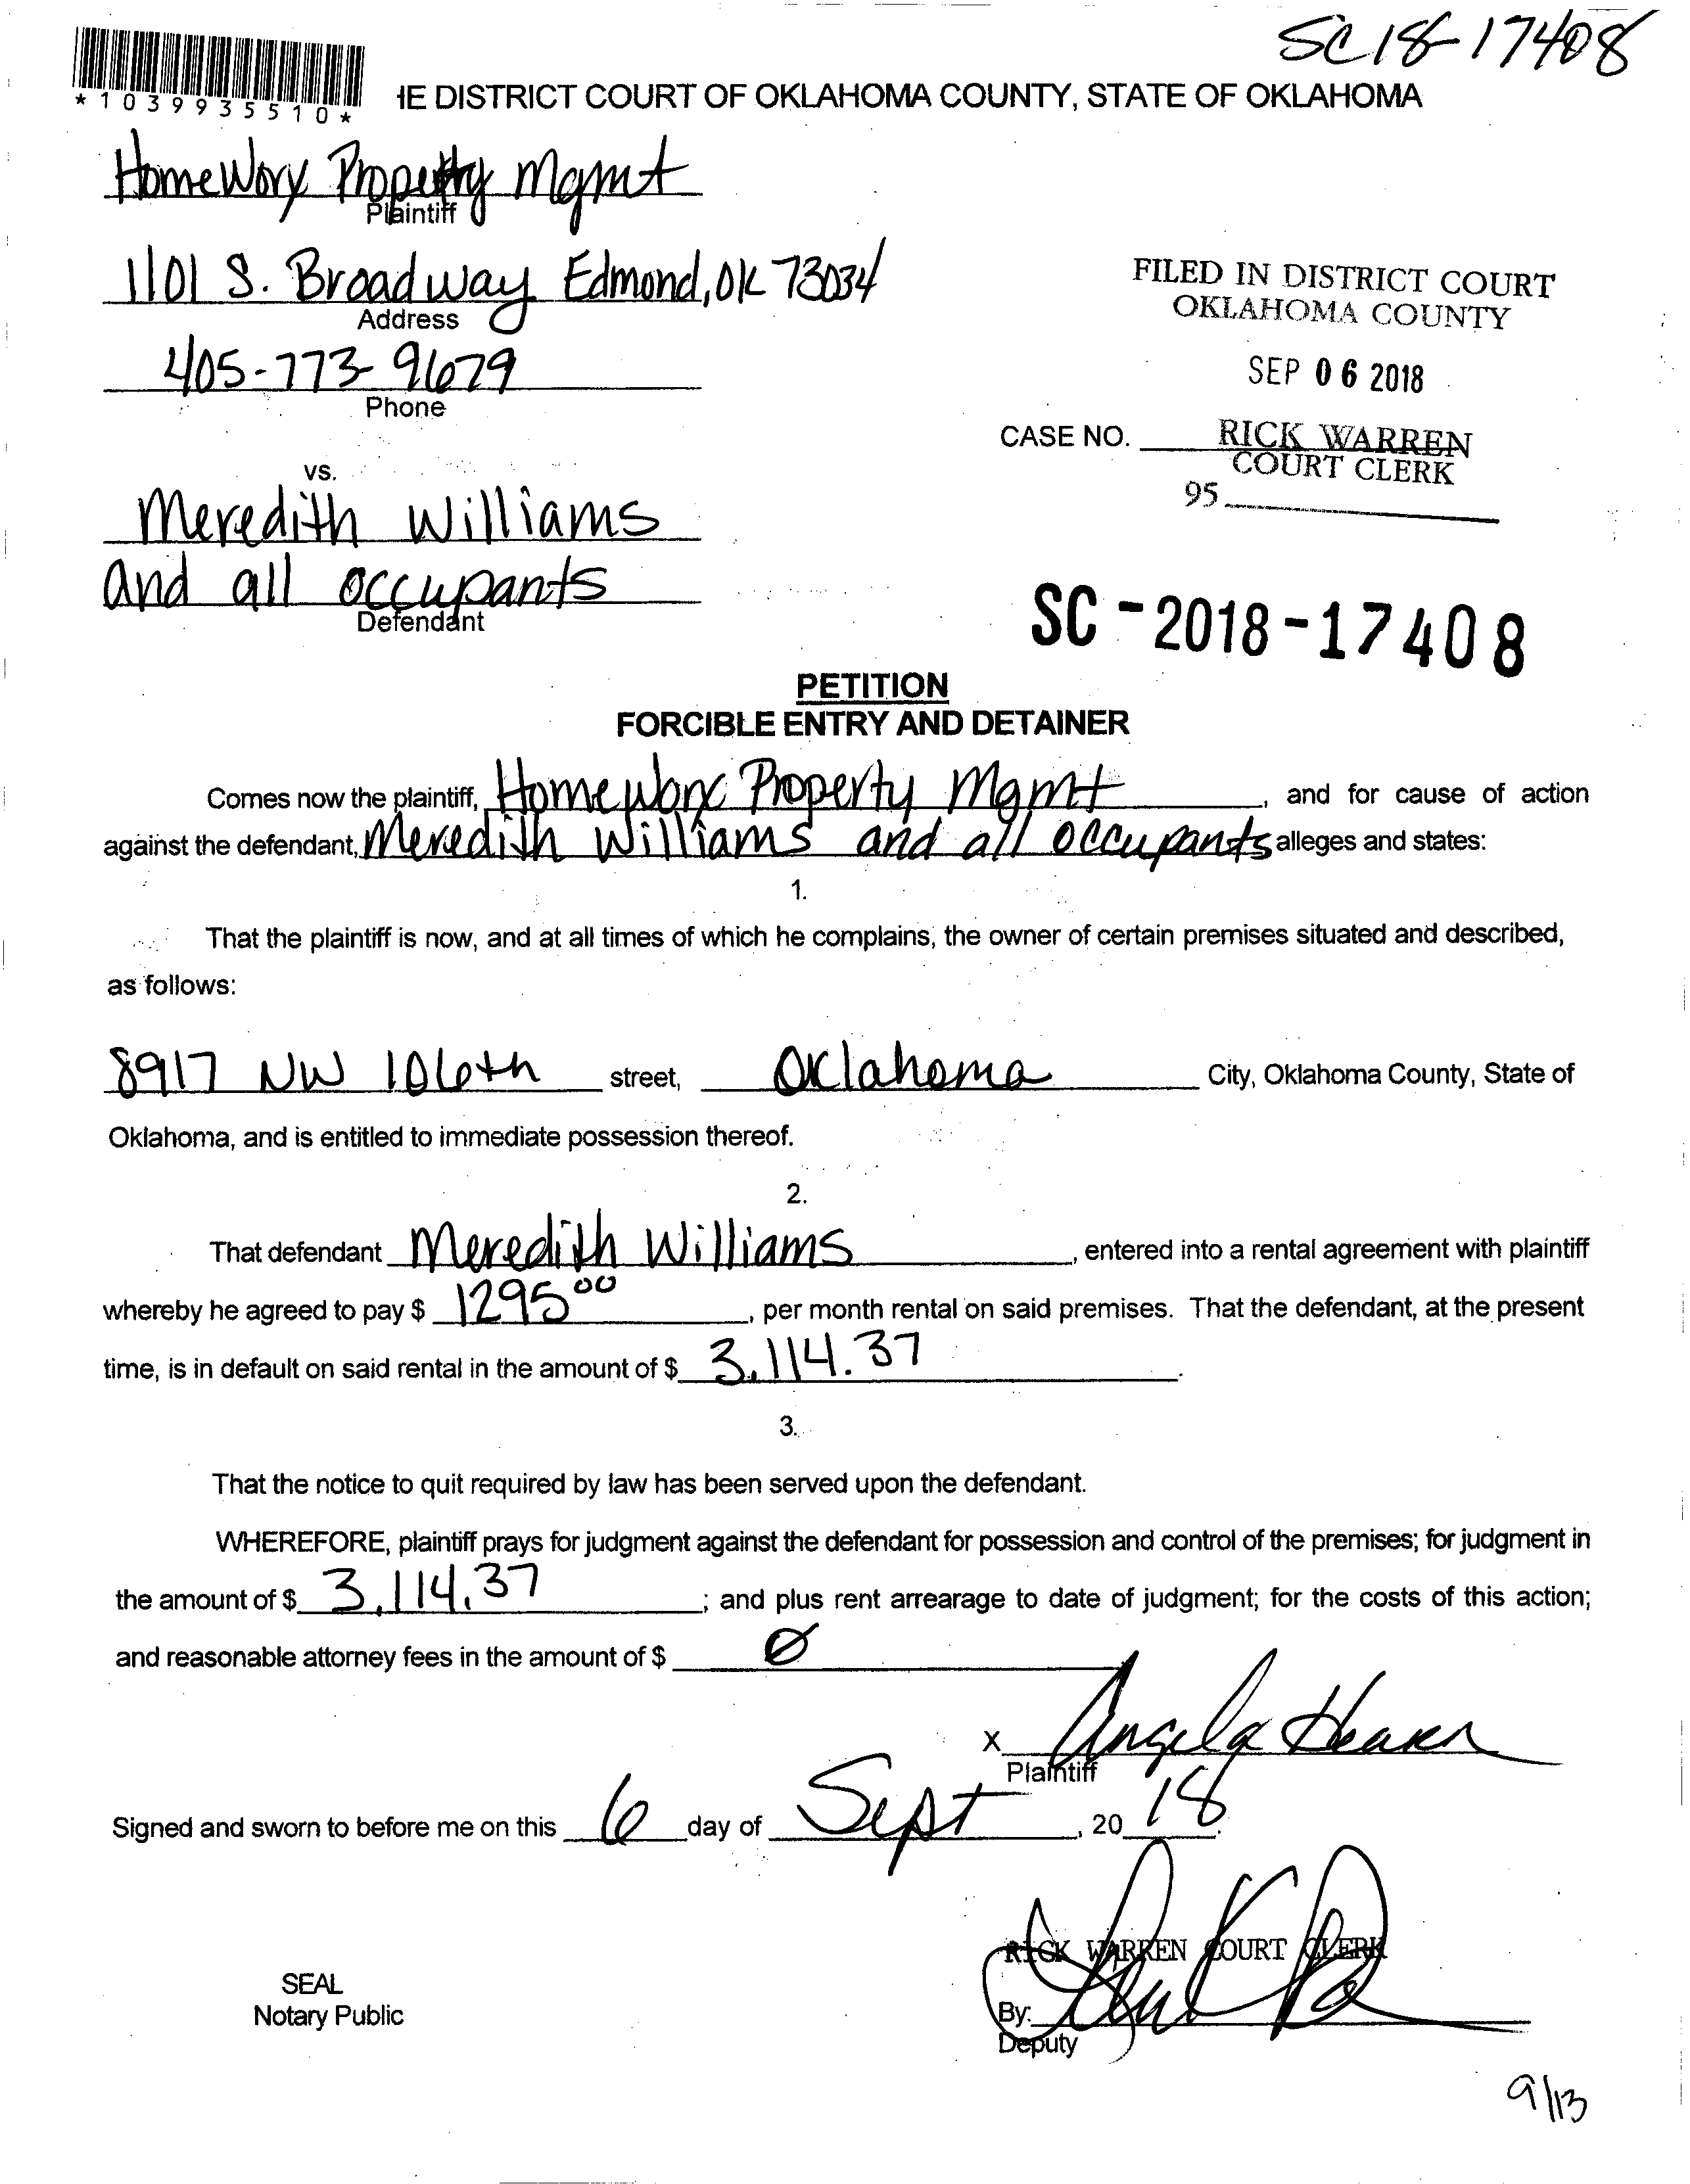 SC18-17408
*1039935510*
IE DISTRICT COURT OF OKLAHOMA COUNTY, STATE OF OKLAHOMA
HomeWorx Property Mgmt
Plaintiff
1101 S. Broadway Edmond, OK 73034
Address
FILED IN DISTRICT COURT
OKLAHOMA COUNTY
405-773-9679
Phone
SEP 06 2018
CASE NO.
RICK WARREN
COURT CLERK
95
vs.
Meredith Williams
and all occupants
Defendant
SC-2018-17408
PETITION
FORCIBLE ENTRY AND DETAINER
Comes now the plaintiff, Homeworx Property Mgmt, and for cause of action
against the defendant, Meredith Williams and all occupants alleges and states:
1.
That the plaintiff is now, and at all times of which he complains, the owner of certain premises situated and described,
as follows:
8917 NW 106th street, Oklahoma City, Oklahoma County, State of
Oklahoma, and is entitled to immediate possession thereof.
2.
That defendant Meredith Williams, entered into a rental agreement with plaintiff
whereby he agreed to pay $ 1295 00, per month rental on said premises. That the defendant, at the present
time, is in default on said rental in the amount of $ 3,114.37.
3.
That the notice to quit required by law has been served upon the defendant.
WHEREFORE, plaintiff prays for judgment against the defendant for possession and control of the premises; for judgment in
the amount of $ 3,114.37; and plus rent arrearage to date of judgment; for the costs of this action;
and reasonable attorney fees in the amount of $ Ø
X Angela
Plaintiff
Signed and sworn to before me on this 6 day of Sept, 20 18.
RICK WARREN COURT CLERK
SEAL
Notary Public
By:
Deputy
9/13